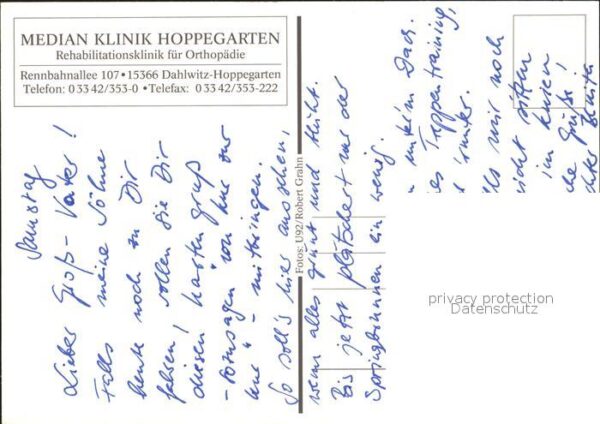 MEDIAN KLINIK HOPPEGARTEN
Rehabilitationsklinik für Orthopädie
Rennbahnallee 107 • 15366 Dahlwitz-Hoppegarten
Telefon: 0 33 42/353-0 • Telefax: 0 33 42/353-222
Samstag
Lieber Groß-Vater!
Falls meine Söhne
heute noch zu Dir
fahren, sollen sie Dir
diesen Kartengruß
- sozusagen "von Knie zu
Knie" - mitbringen.
So soll's hier aussehen,
wenn alles grünt und blüht.
Bis jetzt plätschert nur der
Springbrunnen ein wenig.
unter'm Dach.
es Treppentraining,
runter.
s mir noch
nicht sitzen
im knien
che Grüße!
Fotos: U92/Robert Grahn
privacy protection
Datenschutz